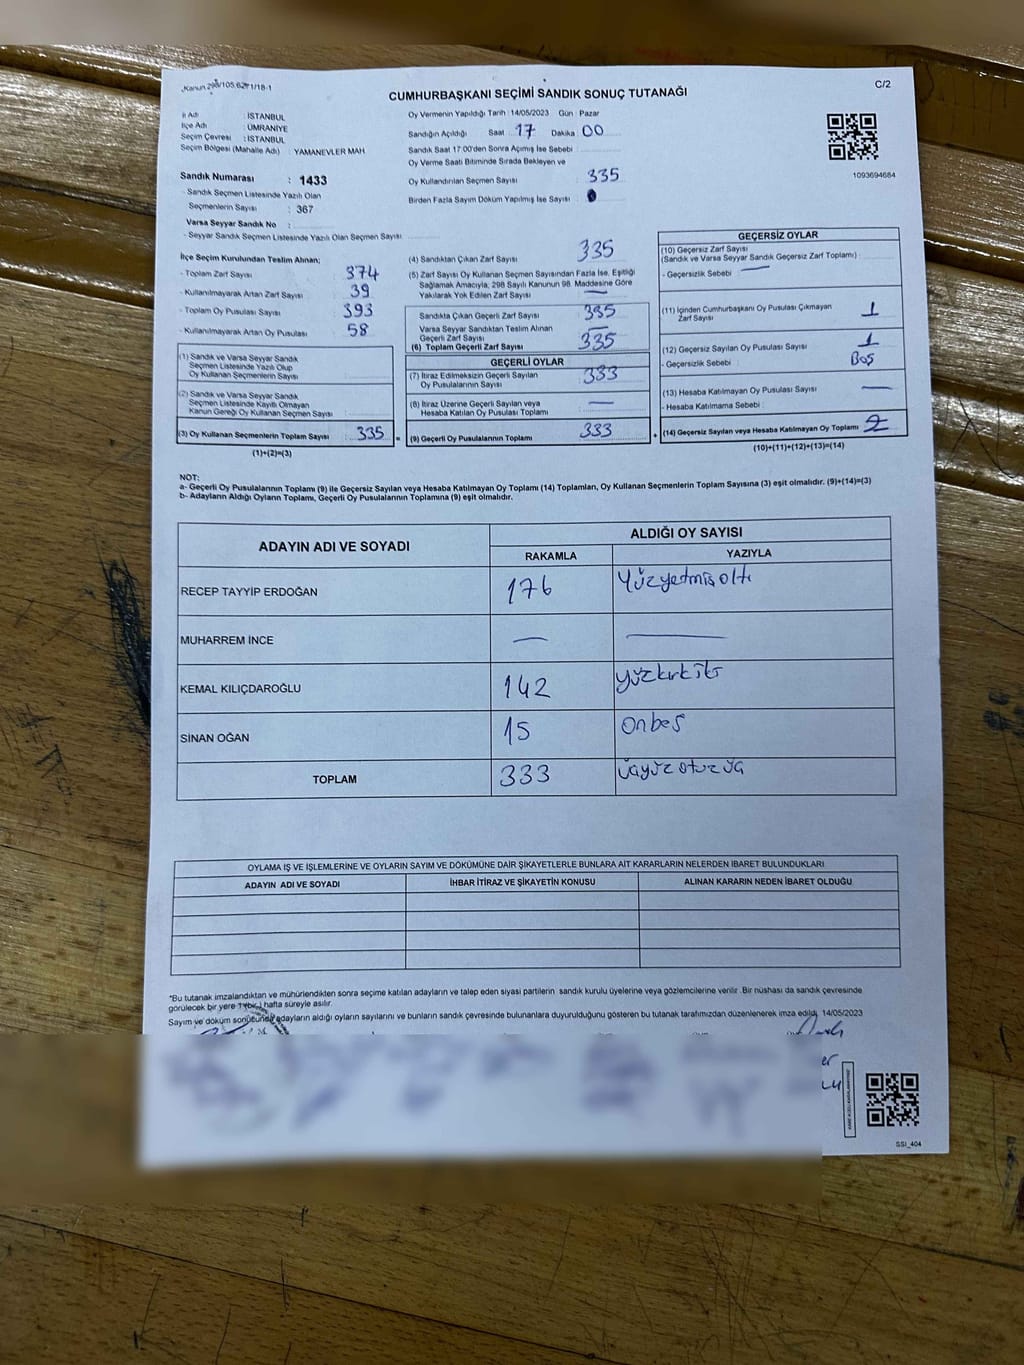 Kanun 298/105,62 F1/18-1
CUMHURBAŞKANI SEÇİMİ SANDIK SONUÇ TUTANAĞI
C/2
İl Adı : İSTANBUL
İlçe Adı : ÜMRANİYE
Seçim Çevresi : İSTANBUL
Seçim Bölgesi (Mahalle Adı) : YAMANEVLER MAH.
Sandık Numarası : 1433
- Sandık Seçmen Listesinde Yazılı Olan
Seçmenlerin Sayısı : 367
Varsa Seyyar Sandık No :
- Seyyar Sandık Seçmen Listesinde Yazılı Olan Seçmen Sayısı
Oy Vermenin Yapıldığı Tarih : 14/05/2023 Gün : Pazar
Sandığın Açıldığı Saat 17 Dakika 00
Sandık Saat 17:00'den Sonra Açımış İse Sebebi :
Oy Verme Saati Bitiminde Sırada Bekleyen ve
Oy Kullandırılan Seçmen Sayısı : 335
Birden Fazla Sayım Döküm Yapılmış İse Sayısı :
1093694684
İlçe Seçim Kurulundan Teslim Alınan;
- Toplam Zarf Sayısı 374
- Kullanılmayarak Artan Zarf Sayısı 39
- Toplam Oy Pusulası Sayısı 393
- Kullanılmayarak Artan Oy Pusulası 58
(1) Sandık ve Varsa Seyyar Sandık
Seçmen Listesinde Yazılı Olup
Oy Kullanan Seçmenlerin Sayısı
(2) Sandık ve Varsa Seyyar Sandık
Seçmen Listesinde Kayıtlı Olmayan
Kanun Gereği Oy Kullanan Seçmen Sayısı
(3) Oy Kullanan Seçmenlerin Toplam Sayısı : 335
(1)+(2)=(3)
(4) Sandıktan Çıkan Zarf Sayısı 335
(5) Zarf Sayısı Oy Kullanan Seçmen Sayısından Fazla İse, Eşitliği
Sağlamak Amacıyla, 298 Sayılı Kanunun 98. Maddesine Göre
Yakılarak Yok Edilen Zarf Sayısı —
Sandıkta Çıkan Geçerli Zarf Sayısı 335
Varsa Seyyar Sandıktan Teslim Alınan
Geçerli Zarf Sayısı : —
(6) Toplam Geçerli Zarf Sayısı 335
GEÇERLİ OYLAR
(7) İtiraz Edilmeksizin Geçerli Sayılan
Oy Pusulalarının Sayısı : 333
(8) İtiraz Üzerine Geçerli Sayılan veya
Hesaba Katılan Oy Pusulası Toplamı —
= (9) Geçerli Oy Pusulalarının Toplamı 333
GEÇERSİZ OYLAR
(10) Geçersiz Zarf Sayısı
(Sandık ve Varsa Seyyar Sandık Geçersiz Zarf Toplamı) :
- Geçersizlik Sebebi : —
(11) İçinden Cumhurbaşkanı Oy Pusulası Çıkmayan
Zarf Sayısı 1
(12) Geçersiz Sayılan Oy Pusulası Sayısı 1
- Geçersizlik Sebebi : Boş
(13) Hesaba Katılmayan Oy Pusulası Sayısı —
- Hesaba Katılmama Sebebi :
+ (14) Geçersiz Sayılan veya Hesaba Katılmayan Oy Toplamı 2
(10)+(11)+(12)+(13)=(14)
NOT:
a- Geçerli Oy Pusulalarının Toplamı (9) ile Geçersiz Sayılan veya Hesaba Katılmayan Oy Toplamı (14) Toplamları, Oy Kullanan Seçmenlerin Toplam Sayısına (3) eşit olmalıdır. (9)+(14)=(3)
b- Adayların Aldığı Oyların Toplamı, Geçerli Oy Pusulalarının Toplamına (9) eşit olmalıdır.
ADAYIN ADI VE SOYADI
ALDIĞI OY SAYISI
RAKAMLA YAZIYLA
RECEP TAYYİP ERDOĞAN 176 Yüzyetmişaltı
MUHARREM İNCE — —
KEMAL KILIÇDAROĞLU 142 yüzkırkiki
SİNAN OĞAN 15 onbeş
TOPLAM 333 üçyüzotuzüç
OYLAMA İŞ VE İŞLEMLERİNE VE OYLARIN SAYIM VE DÖKÜMÜNE DAİR ŞİKAYETLERLE BUNLARA AİT KARARLARIN NELERDEN İBARET BULUNDUKLARI
ADAYIN ADI VE SOYADI İHBAR İTİRAZ VE ŞİKAYETİN KONUSU ALINAN KARARIN NEDEN İBARET OLDUĞU
*Bu tutanak imzalandıktan ve mühürlendikten sonra seçime katılan adayların ve talep eden siyasi partilerin sandık kurulu üyelerine veya gözlemcilerine verilir. Bir nüshası da sandık çevresinde
görülecek bir yere 1 (bir) hafta süreyle asılır.
Sayım ve döküm sonucunda adayların aldığı oyların sayılarını ve bunların sandık çevresinde bulunanlara duyurulduğunu gösteren bu tutanak tarafımızdan düzenlenerek imza edildi. 14/05/2023
SSI_404